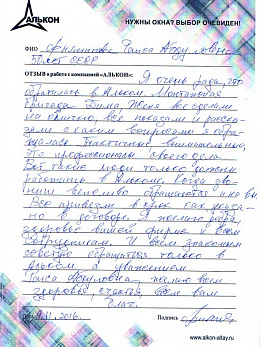 АЛЬКОН
НУЖНЫ ОКНА? ВЫБОР ОЧЕВИДЕН!
ФИО Раиса
50 лет СССР
ОТЗЫВ о работе с компанией «АЛЬКОН»: Я очень рада, что
обратилась в Алькон. Монтажная
бригада Дима, Женя все сделали
на отлично, все показали и расска-
зали с каким вопросами я обра-
щалась. Тактичные внимательные,
Это профессионалы своего дела.
Вот такие люди только должны
работать в Альконе. Когда зво-
нишь вежливо обращаются и ко вы.
Все привезли в срок как указа-
но в договоре. Я желаю добра
здоровье вашей фирме и всем
сотрудникам. И всем знакомым
советую обращаться только в
Алькон. С уважением
Раиса желаю всем
здоровья, счастья, всем вам
благ.
Дата 2016. Подпись
www.alkon-altay.ru